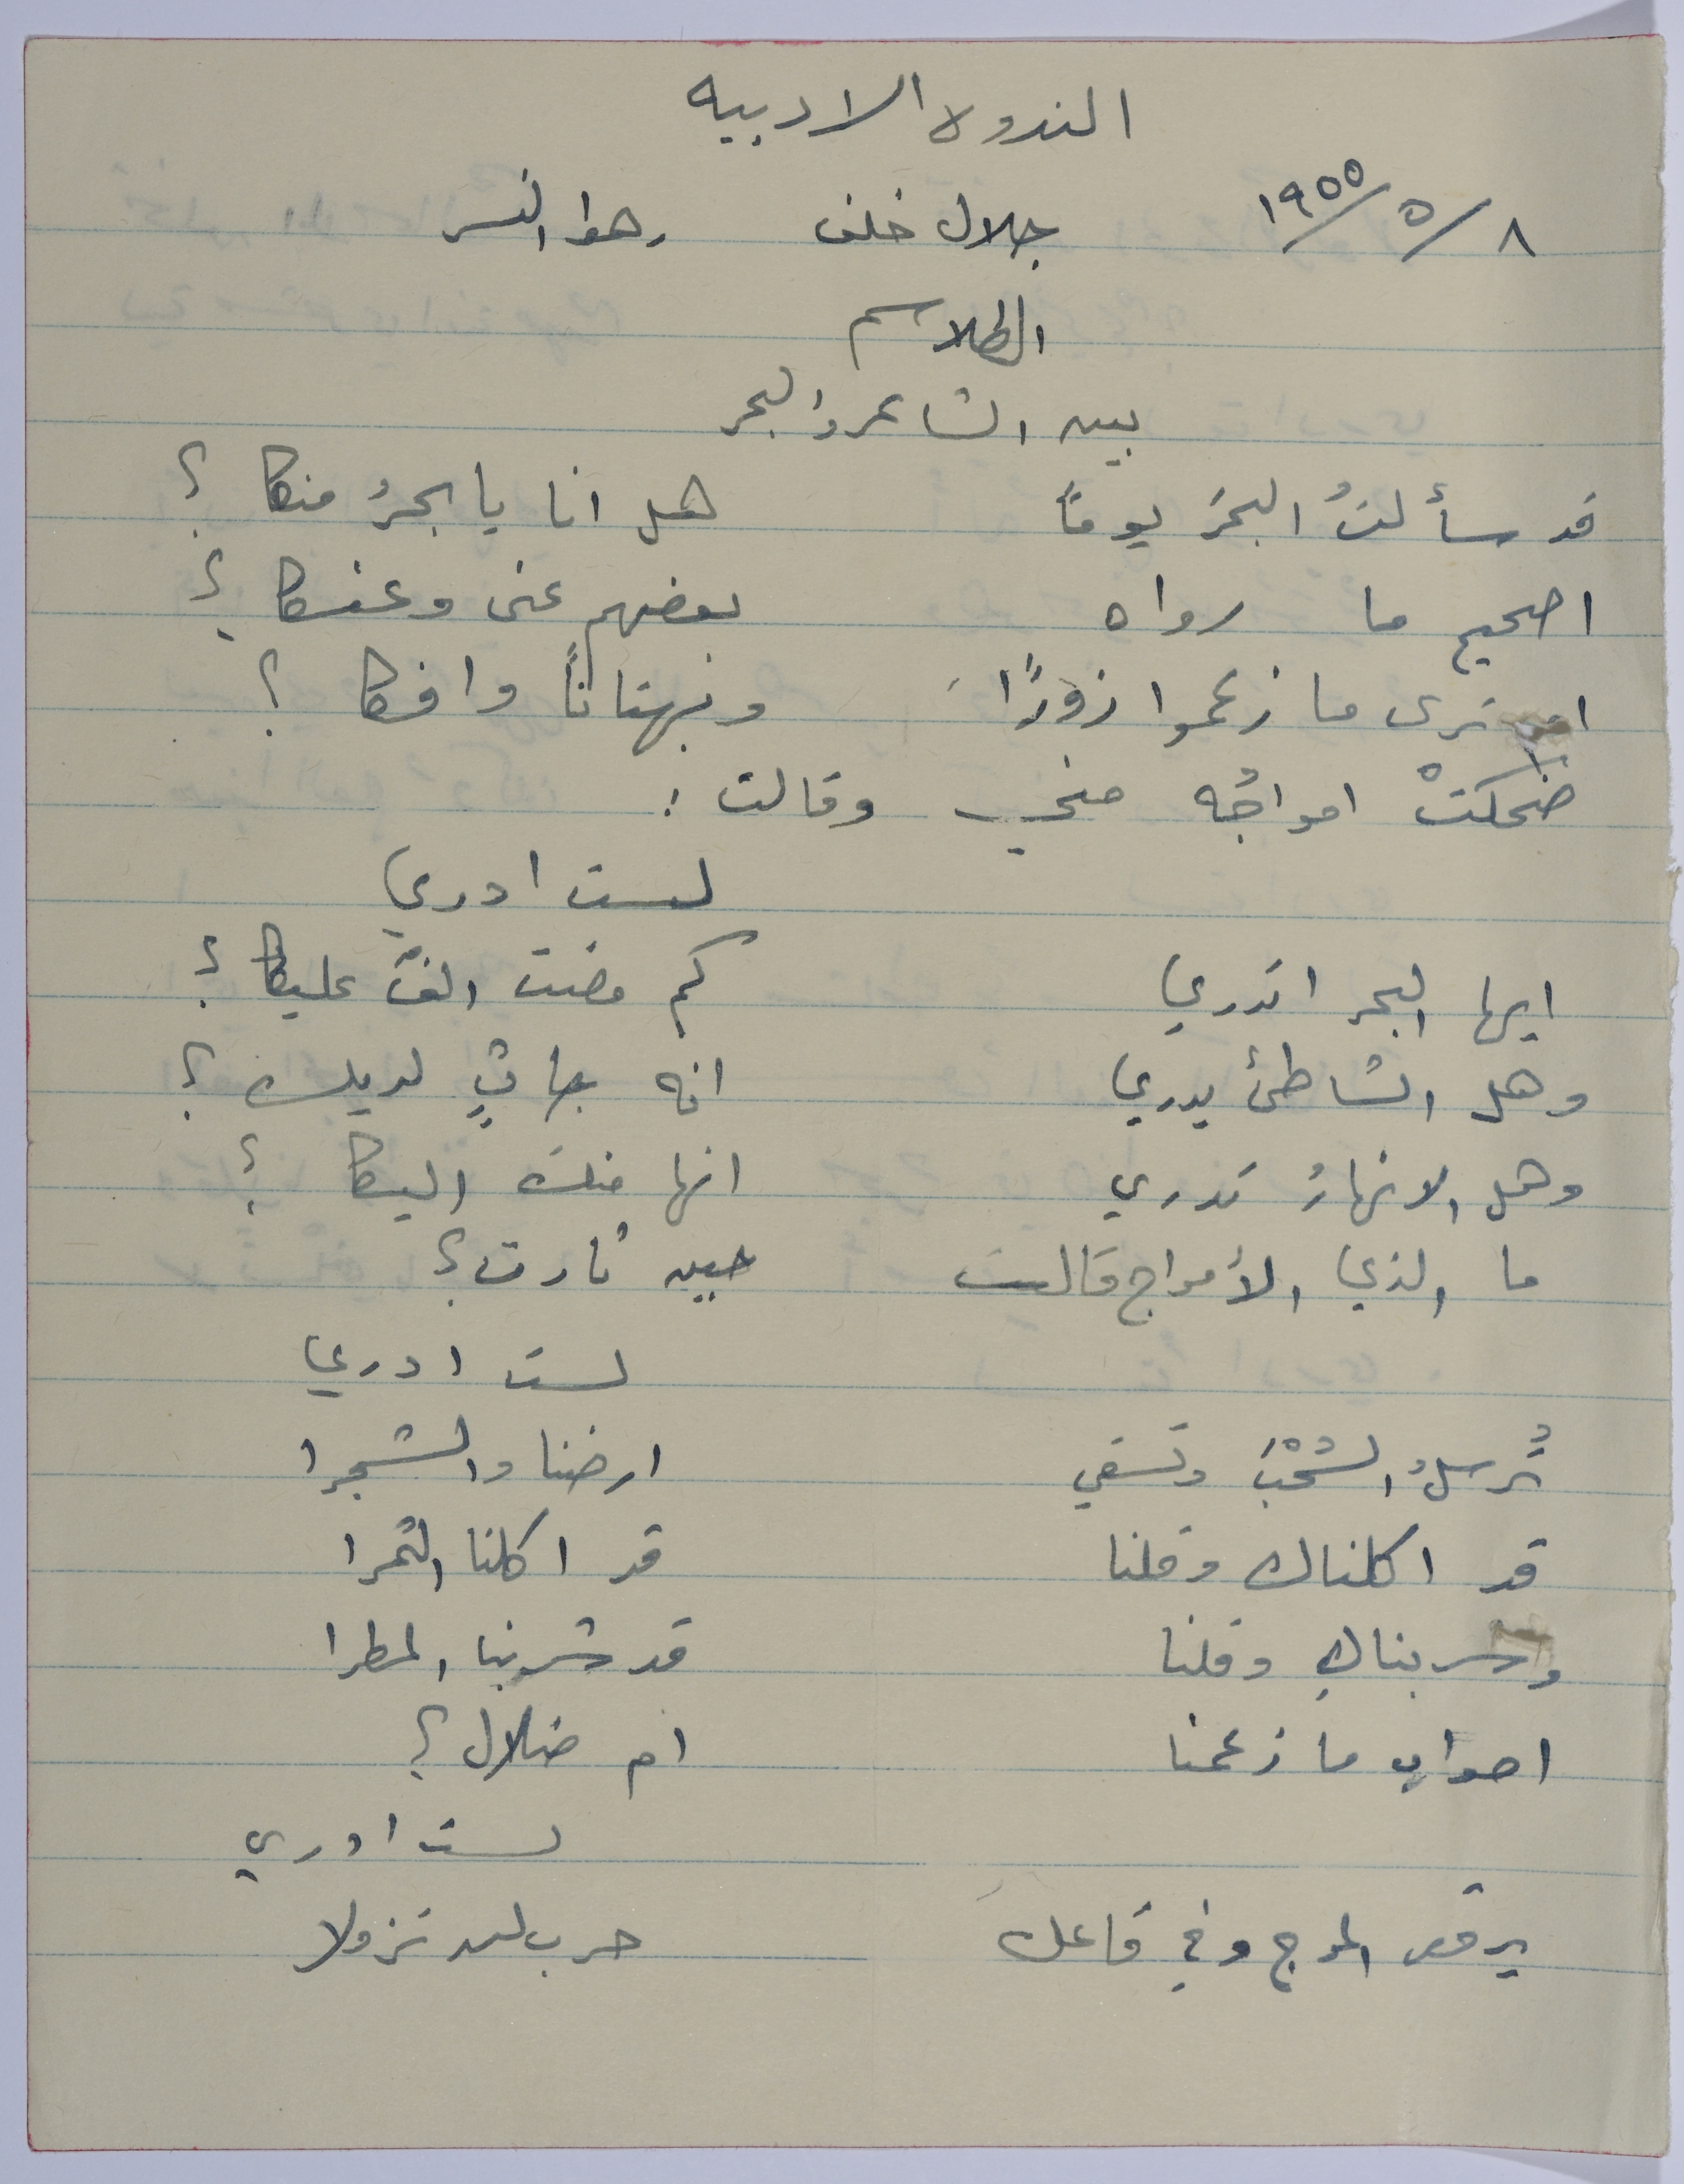 الندوه الادبيه
٨/٥/١٩٥٥ جلال خلف رهوا النسر
الطلاسم
بين الشاعر والبحر
قد سألتُ البحرَ يوماً هل انا يا بحرُ منكا ؟
اصحيح ما رواه بعضهم عني وعنكا ؟
ام ترى ما زعموا زورًا وبهتاناً وافكا ؟
ضحكتْ امواجُه مني وقالت :
لست ادري
ايها البحر اتدري كم مضت الفٌ عليكا ؟
وهل الشاطئ يدري انه جاثٍ لديك ؟
وهل الانهارُ تدري انها منك اليكا ؟
ما الذي الأمواج قالت حين ثارت ؟
لست ادري
تُرسلُ السُحْبَ وتسقي ارضنا والشجرا
قد اكلناك وقلنا قد اكلنا الثمرا
وشربناك وقلنا قد شربنا المطرا
اصواب ما زعمنا ام ضلال ؟
لست ادري
يرقص الموج وفي قاعك حرب لن تزولا